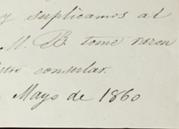 y suplicamos al
M. B tome razon
consular.
Mayo de 1860